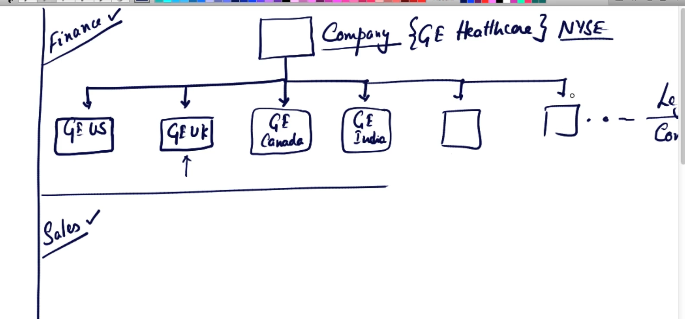 Finance ✓
Company {GE Healthcare} NYSE
GE US
GE UK
GE
Canada
GE
India
Sales ✓